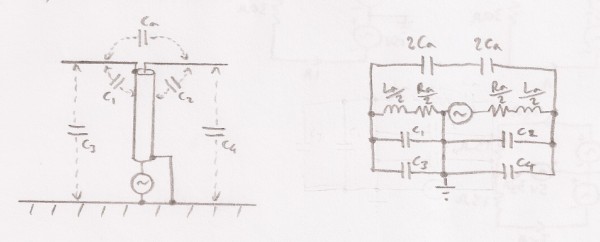 Ca
C1
C2
C3
C4
2Ca 2Ca
La/2 Ra/2 ~ Ra/2 La/2
C1 C2
C3 C4
~